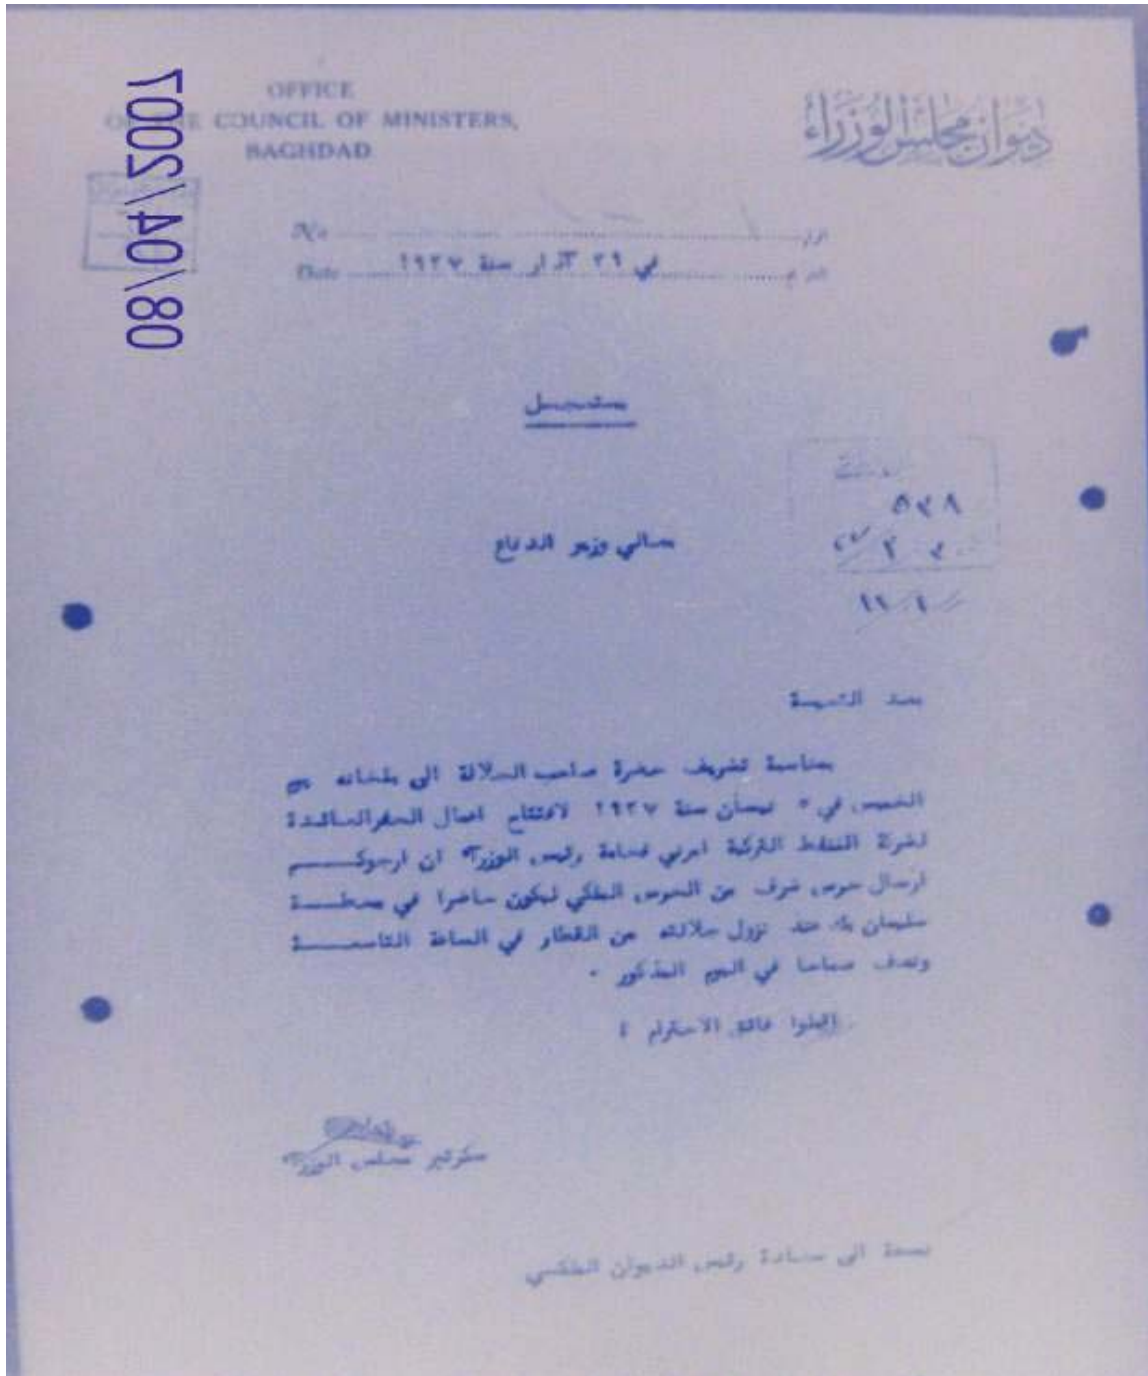 OFFICE
OF THE COUNCIL OF MINISTERS,
BAGHDAD
ديوان مجلس الوزراء
08/04/2007
No
Date في ٢٩ آذار سنة ١٩٢٧
مستعجل
٥٣٨
معالي وزير الدفاع
بعد التحية
بمناسبة تشريف حضرة صاحب الجلالة الى طخانه يوم
الخميس في ٥ نيسان سنة ١٩٢٧ لافتتاح اعمال الحفر العائدة
لشركة النفط التركية امرني فخامة رئيس الوزراء ان ارجوكم
ارسال حرس شرف من الحرس الملكي ليكون حاضرا في محطة
سليمان بك عند نزول جلالته من القطار في الساعة التاسعة
ونصف صباحا في اليوم المذكور .
اقبلوا فائق الاحترام ؛
سكرتير مجلس الوزراء
نسخة الى سعادة رئيس الديوان الملكي